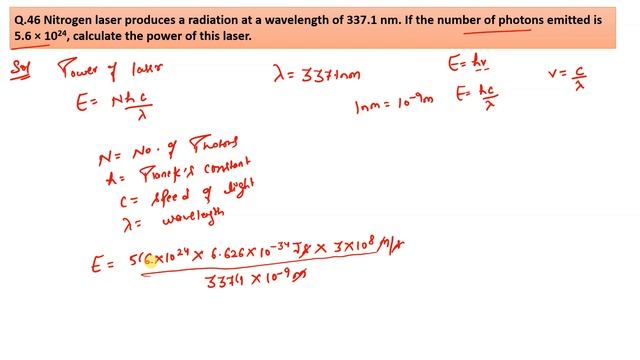 Q.46 Nitrogen laser produces a radiation at a wavelength of 337.1 nm. If the number of photons emitted is
5.6 × 10²⁴, calculate the power of this laser.
Sol Power of laser λ = 337.1nm E = hν ν = c/λ
E = Nhc/λ 1nm = 10⁻⁹m E = hc/λ
N = No. of Photons
h = Planck's constant
c = speed of light
λ = wavelength
E = 5.6 × 10²⁴ × 6.626 × 10⁻³⁴ Js × 3 × 10⁸ m/s
337.1 × 10⁻⁹ m